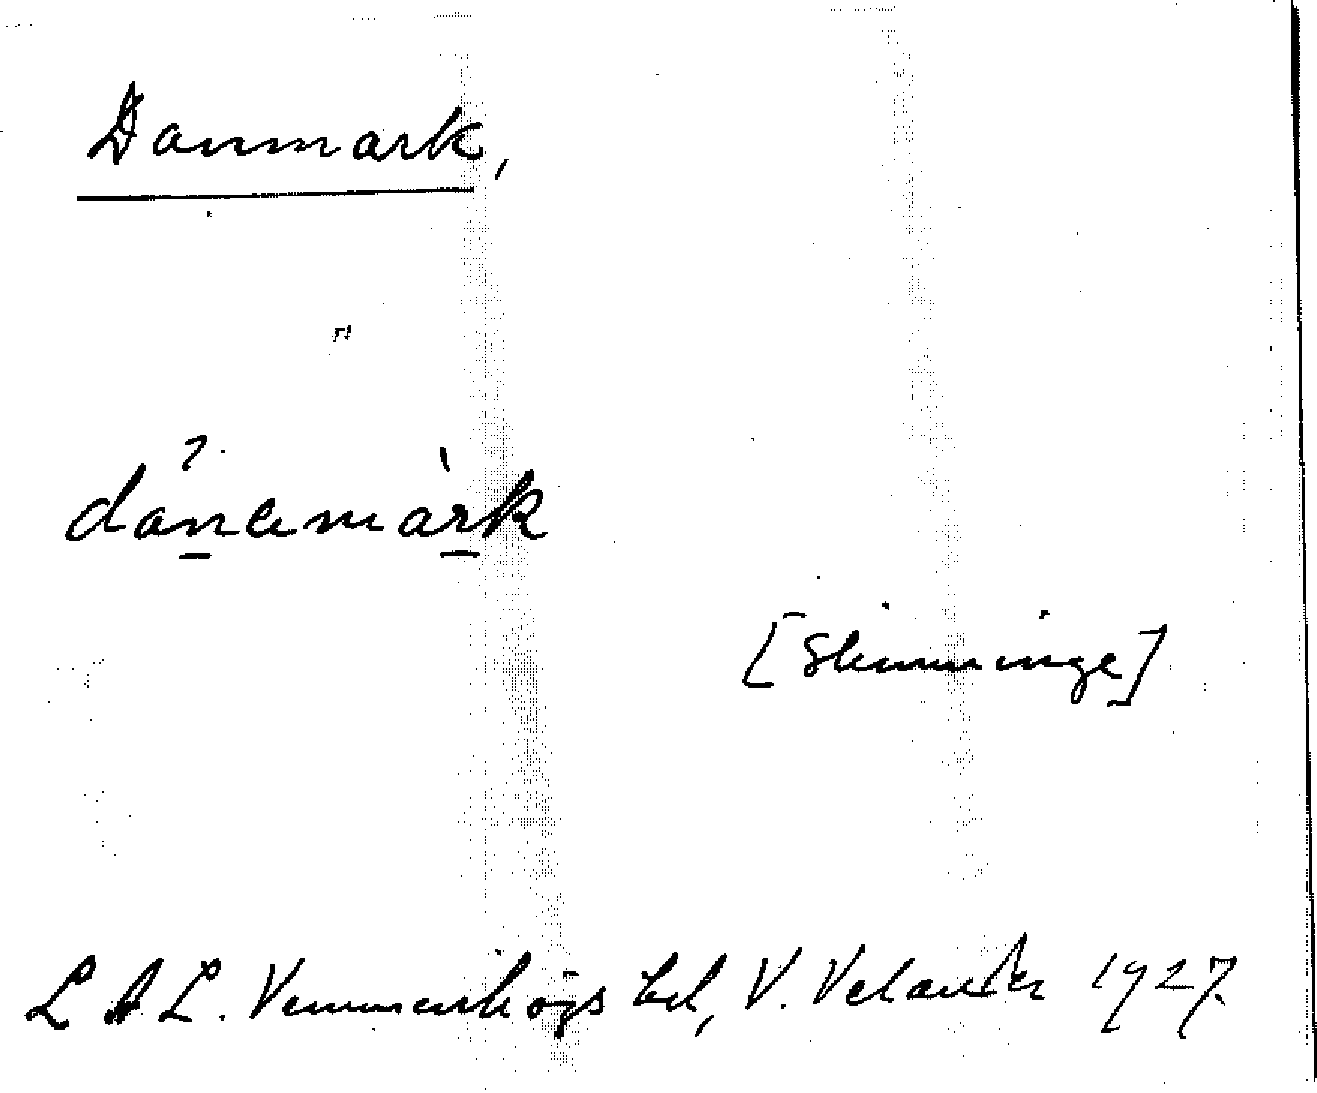 Danmark,
dánemàrk
[Skumminge]
L A L. Vemmenhögs hd, V. Velander 1927.